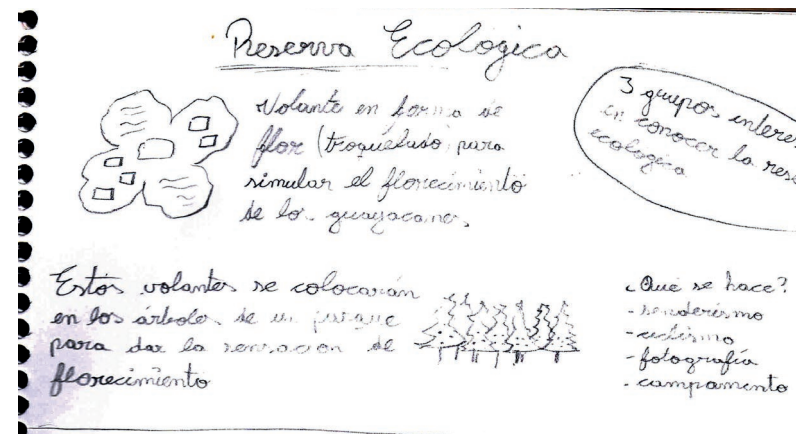 Reserva Ecológica
Volante en forma de
flor (troquelado) para
simular el florecimiento
de los guayacanes.
3 grupos
en conocer la
ecologica
Estos volantes se colocarán
en los árboles de un parque
para dar la sensacion de
florecimiento
¿Qué se hace?
- senderismo
- ciclismo
- fotografía
- campamento